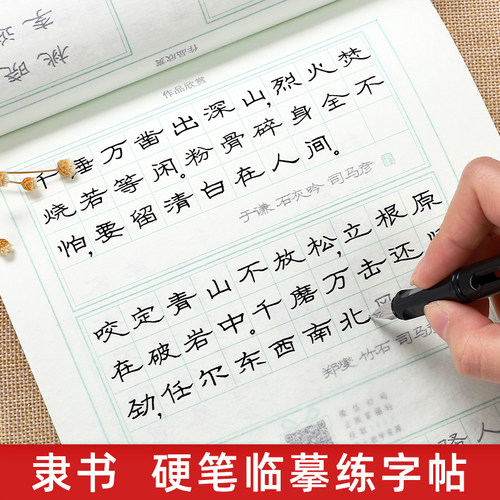 桃晓
作品欣赏
作品欣赏
千锤万凿出深山,烈火焚
烧若等闲。粉骨碎身全不
怕,要留清白在人间。
于谦 石灰吟 司马彦
咬定青山不放松,立根原
在破岩中。千磨万击还
劲,任尔东西南北
郑燮 竹石 司马彦
隶书 硬笔临摹练字帖